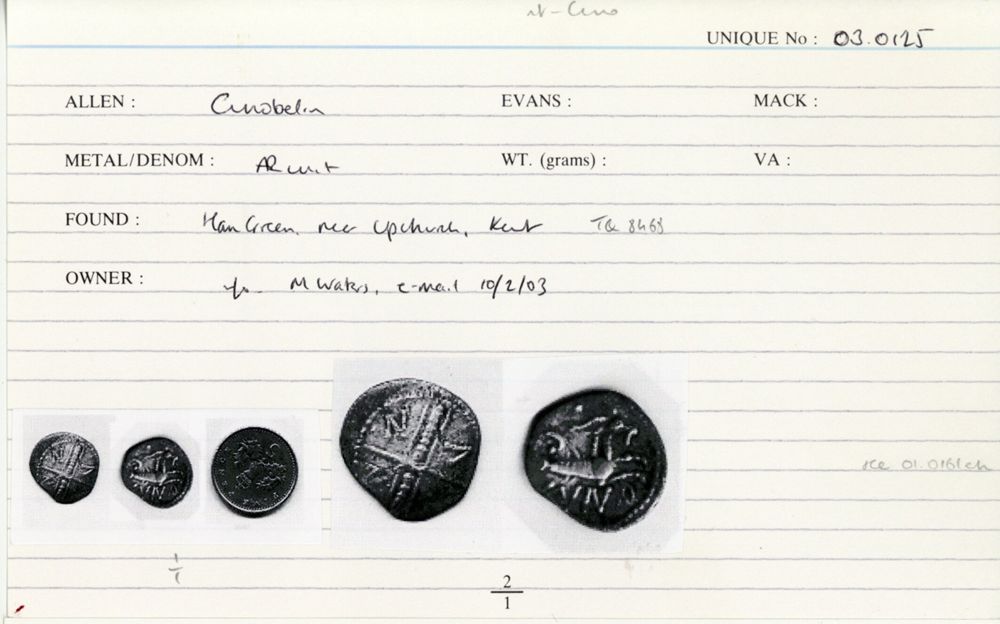 UNIQUE No : 03.0125
ALLEN : Cunobelin EVANS : MACK :
METAL/DENOM : AR unit WT. (grams) : VA :
FOUND : Ham Green, near Upchurch, Kent TQ 8468
OWNER : M Waters, e-mail 10/2/03
1/1
2/1